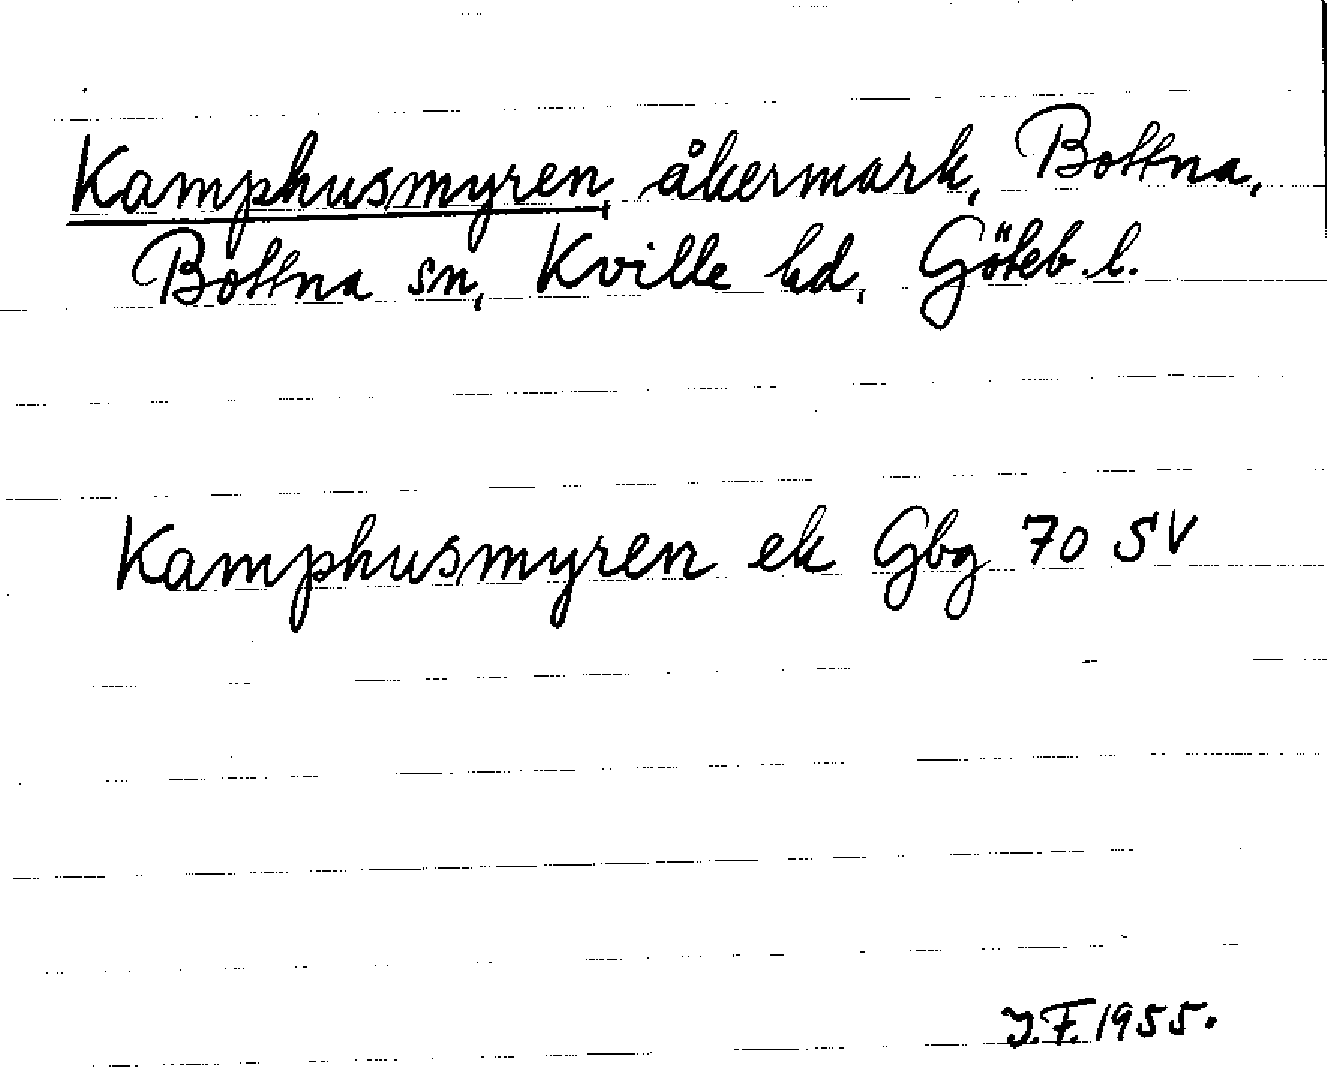 Kamphusmyren, åkermark, Bottna,
Bottna sn, Kville hd, Göteb. l.
Kamphusmyren ek Gbg 70 SV
J.F. 1955.